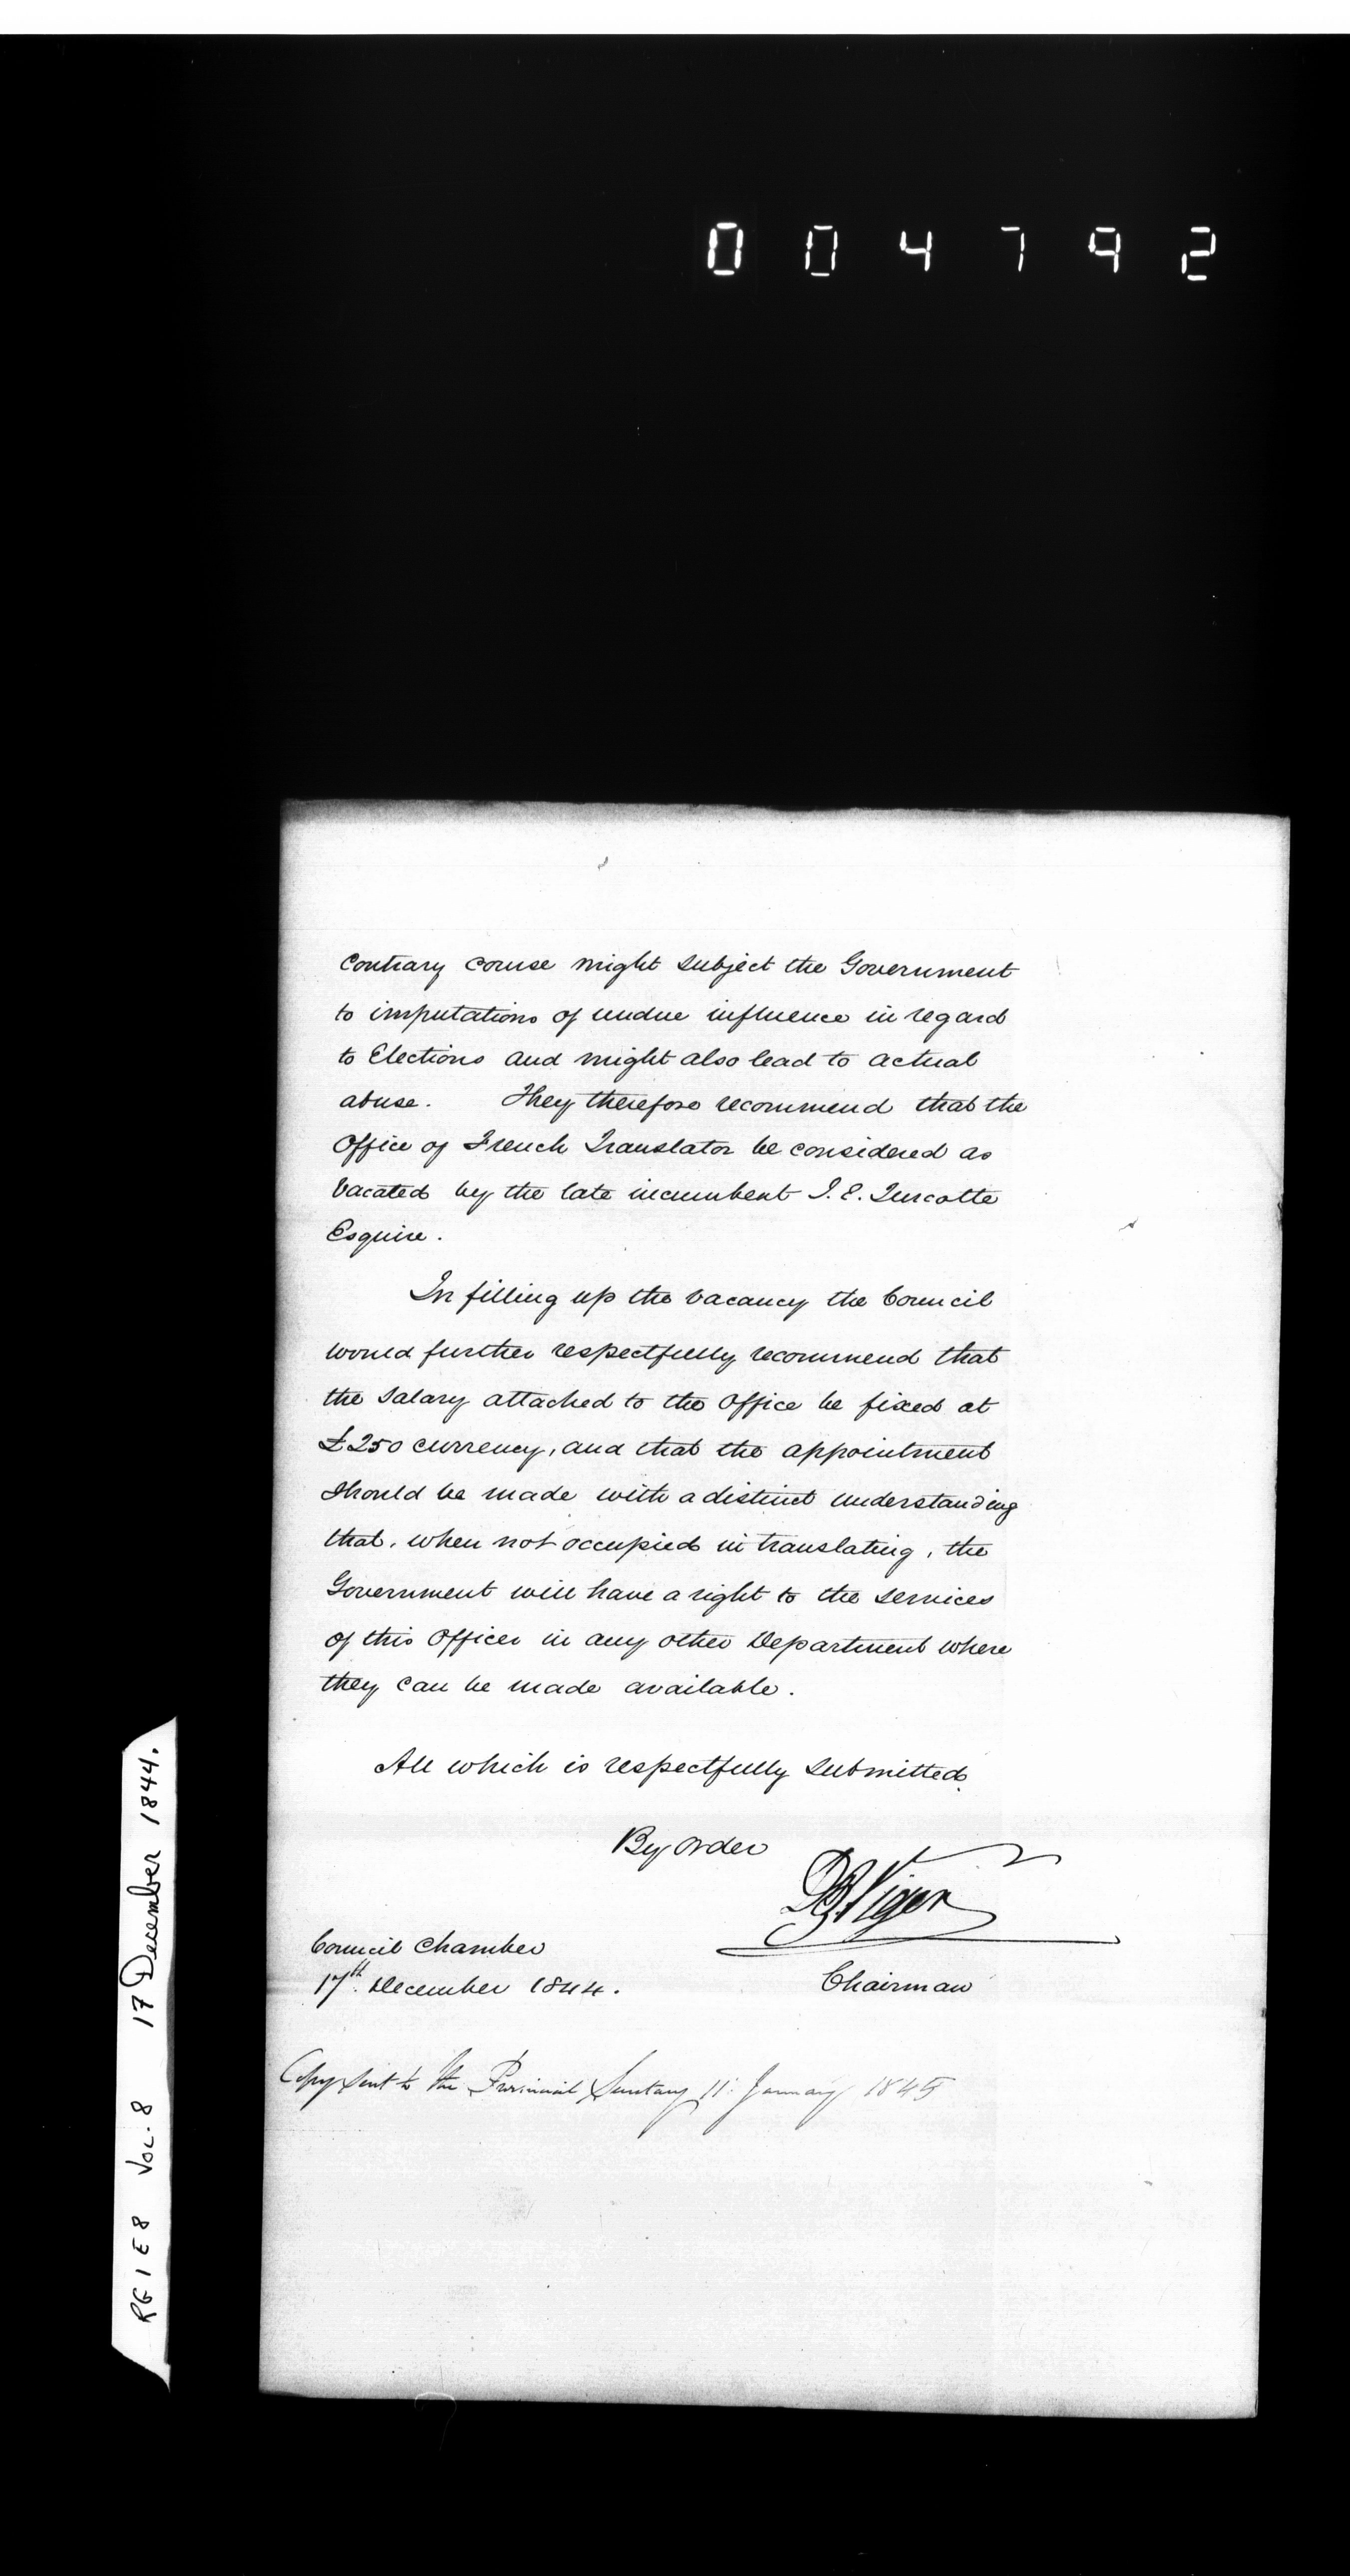 004792
contrary course might subject the Government
to imputations of undue influence in regard
to Elections and might also lead to actual
abuse. They therefore recommend that the
Office of French Translator be considered as
vacated by the late incumbent J. E. Turcotte
Esquire.
In filling up the vacancy the Council
would further respectfully recommend that
the salary attached to the office be fixed at
£250 currency, and that the appointment
should be made with a distinct understanding
that, when not occupied in translating, the
Government will have a right to the services
of this Officer in any other Department where
they can be made available.
All which is respectfully submitted.
By order
DB Viger
Council Chamber
17th. December 1844.
Chairman
Copy sent to the Provincial Secretary 11. January 1845
RG 1 E 8 Vol. 8 17 December 1844.